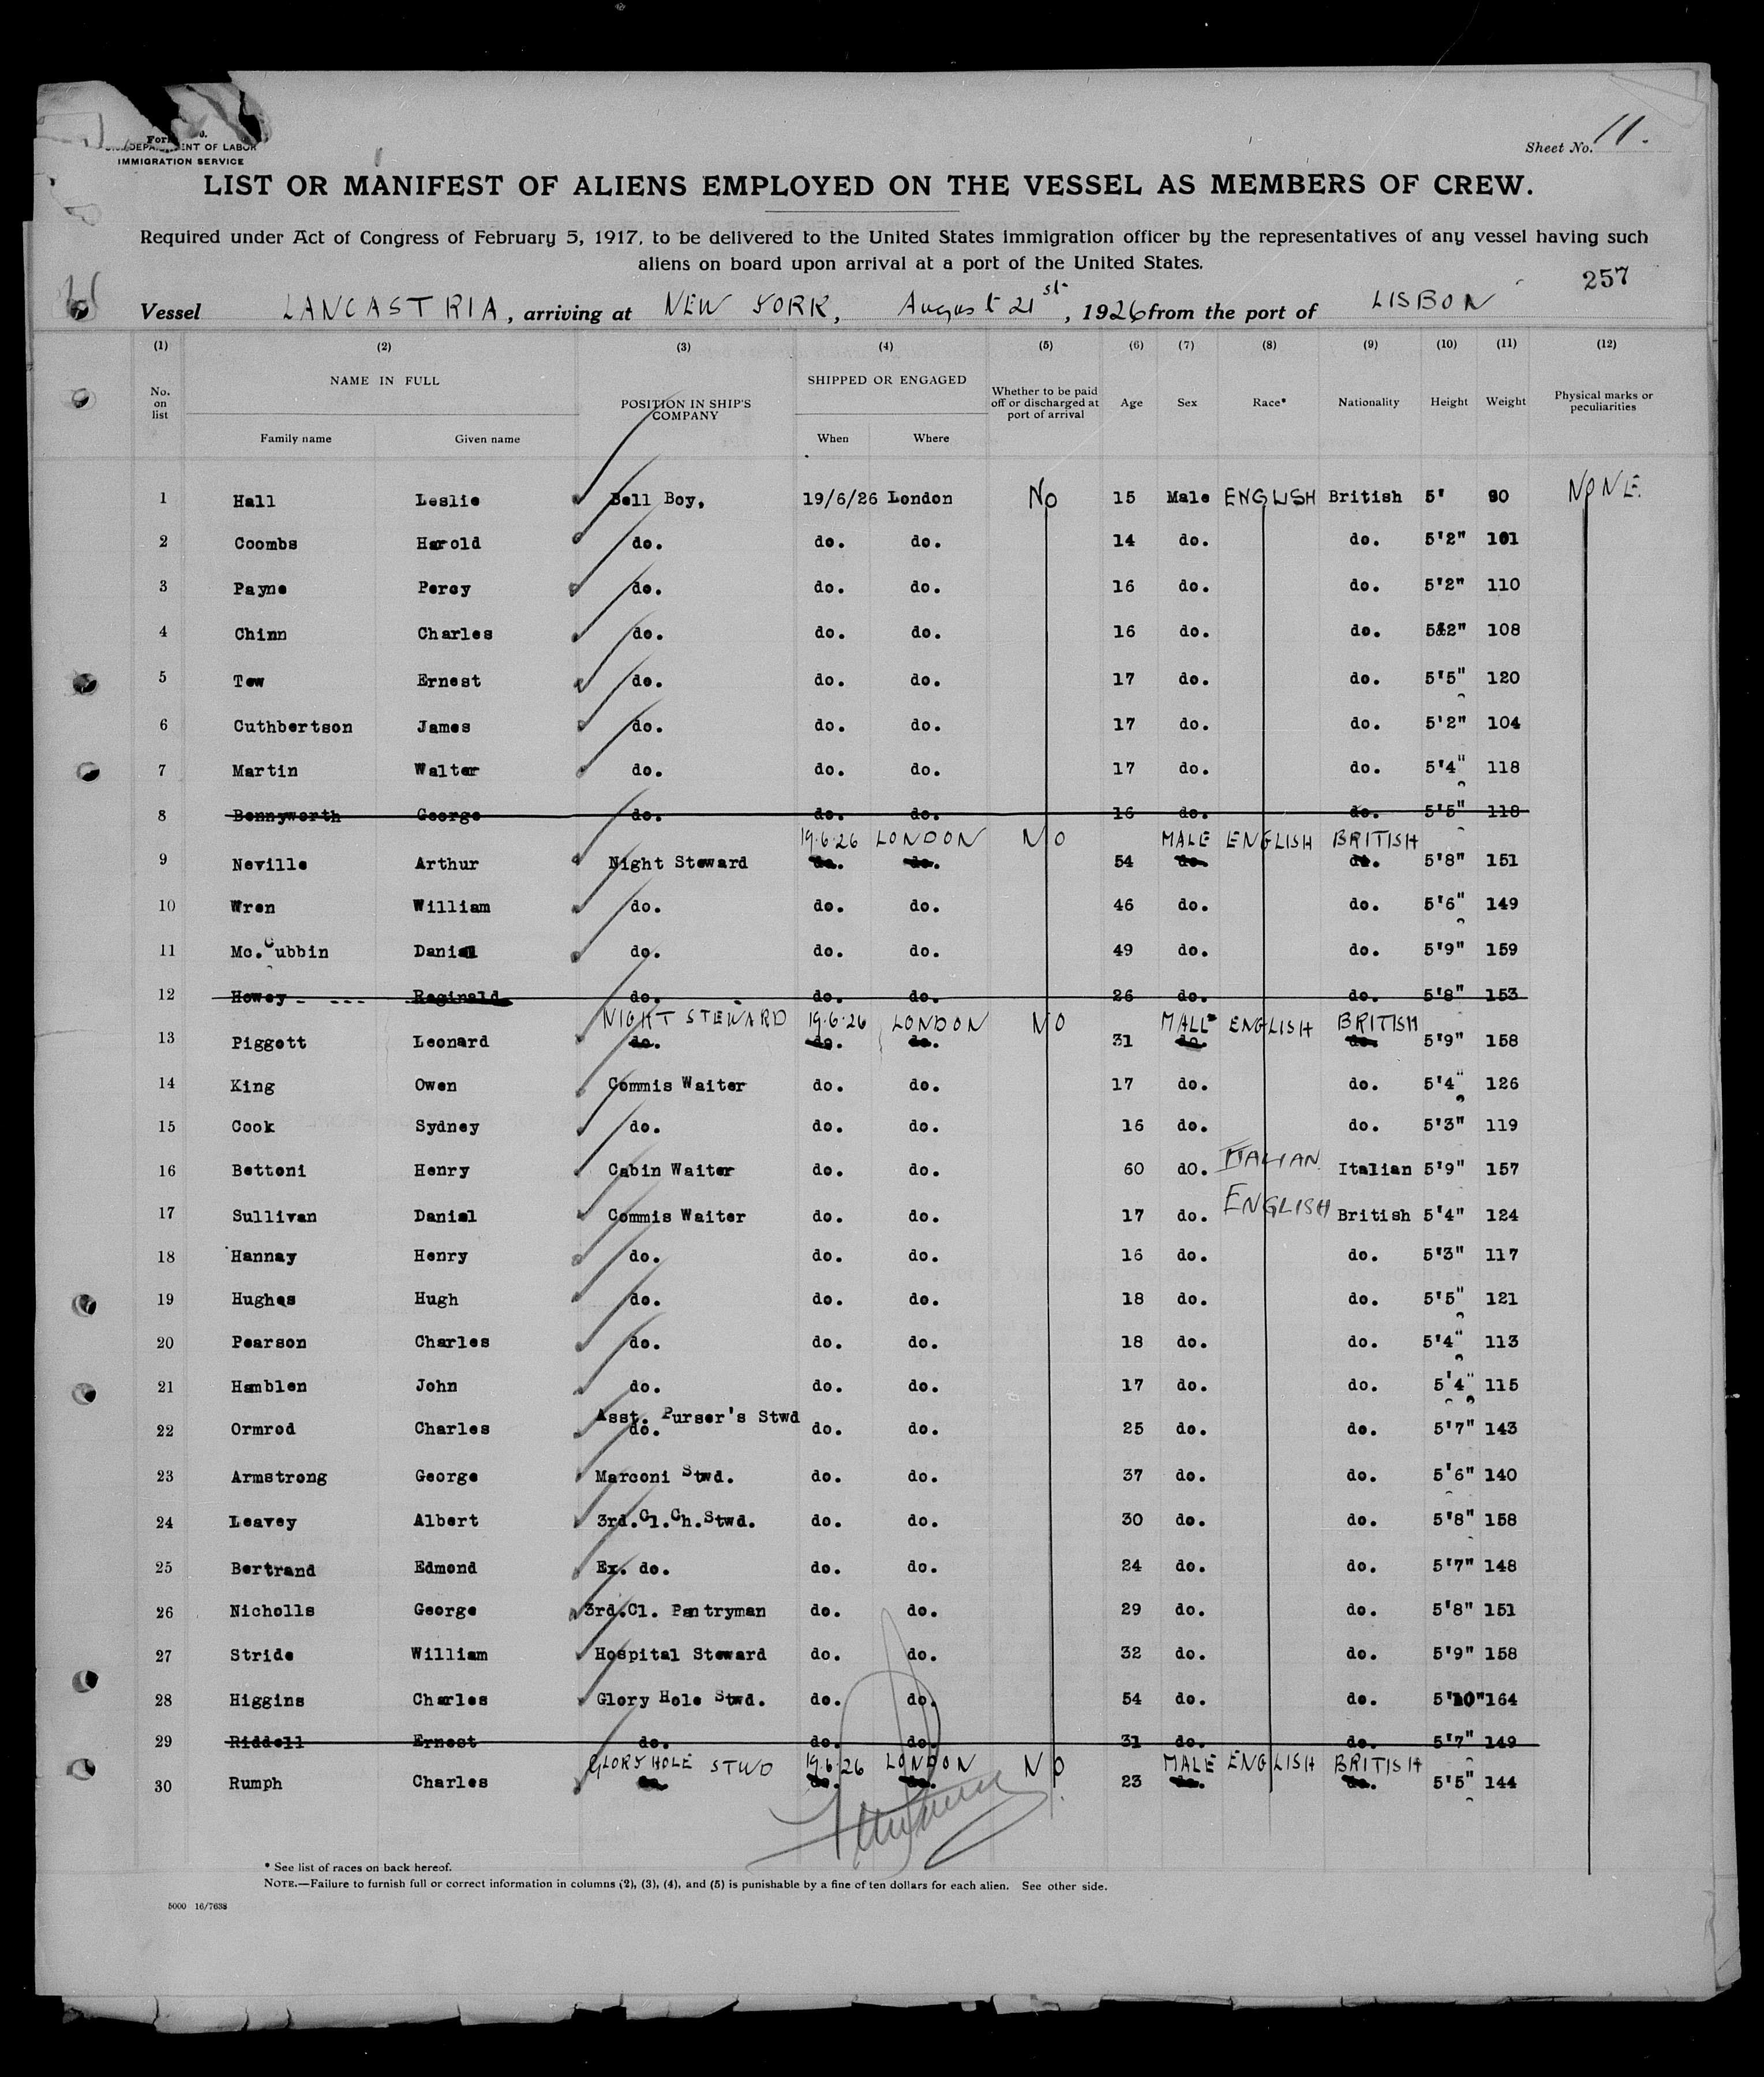 Form
DEPARTMENT OF LABOR
IMMIGRATION SERVICE
Sheet No. 11.
LIST OR MANIFEST OF ALIENS EMPLOYED ON THE VESSEL AS MEMBERS OF CREW.
Required under Act of Congress of February 5, 1917, to be delivered to the United States immigration officer by the representatives of any vessel having such
aliens on board upon arrival at a port of the United States.
257
Vessel LANCASTRIA, arriving at NEW YORK, August 21st, 1926 from the port of LISBON
(1) (2) (3) (4) (5) (6) (7) (8) (9) (10) (11) (12)
No. on list NAME IN FULL Family name Given name POSITION IN SHIP'S COMPANY SHIPPED OR ENGAGED When Where Whether to be paid off or discharged at port of arrival Age Sex Race* Nationality Height Weight Physical marks or peculiarities
1 Hall Leslie Bell Boy, 19/6/26 London No 15 Male ENGLISH British 5' 90 NONE.
2 Coombs Harold do. do. do. 14 do. do. 5'2" 101
3 Payne Percy do. do. do. 16 do. do. 5'2" 110
4 Chinn Charles do. do. do. 16 do. do. 5&2" 108
5 Tew Ernest do. do. do. 17 do. do. 5'5" 120
6 Cuthbertson James do. do. do. 17 do. do. 5'2" 104
7 Martin Walter do. do. do. 17 do. do. 5'4" 118
8 Bennyworth George do. do. do. 16 do. do. 5'5" 118
19.6.26 LONDON NO MALE ENGLISH BRITISH
9 Neville Arthur Night Steward do. do. 54 do. do. 5'8" 151
10 Wren William do. do. do. 46 do. do. 5'6" 149
11 Mc.Cubbin Danial do. do. do. 49 do. do. 5'9" 159
12 Howey Reginald do. do. do. 26 do. do. 5'8" 153
NIGHT STEWARD 19.6.26 LONDON NO MALE ENGLISH BRITISH
13 Piggott Leonard do. do. do. 31 do. do. 5'9" 158
14 King Owen Commis Waiter do. do. 17 do. do. 5'4" 126
15 Cook Sydney do. do. do. 16 do. do. 5'3" 119
16 Bettoni Henry Cabin Waiter do. do. 60 dO. ITALIAN Italian 5'9" 157
17 Sullivan Danial Commis Waiter do. do. 17 do. ENGLISH British 5'4" 124
18 Hannay Henry do. do. do. 16 do. do. 5'3" 117
19 Hughes Hugh do. do. do. 18 do. do. 5'5" 121
20 Pearson Charles do. do. do. 18 do. do. 5'4" 113
21 Hamblen John do. do. do. 17 do. do. 5'4" 115
Asst. Purser's Stwd
22 Ormrod Charles do. do. do. 25 do. do. 5'7" 143
23 Armstrong George Marconi Stwd. do. do. 37 do. do. 5'6" 140
24 Leavey Albert 3rd.Cl.Ch.Stwd. do. do. 30 do. do. 5'8" 158
25 Bertrand Edmond Ex. do. do. do. 24 do. do. 5'7" 148
26 Nicholls George 3rd.Cl. Pantryman do. do. 29 do. do. 5'8" 151
27 Stride William Hospital Steward do. do. 32 do. do. 5'9" 158
28 Higgins Charles Glory Hole Stwd. do. do. 54 do. do. 5'10" 164
29 Riddell Ernest do. do. do. 31 do. do. 5'7" 149
GLORY HOLE STWD 19.6.26 LONDON NO MALE ENGLISH BRITISH
30 Rumph Charles do. do. do. 23 do. do. 5'5" 144
* See list of races on back hereof.
NOTE.—Failure to furnish full or correct information in columns (2), (3), (4), and (5) is punishable by a fine of ten dollars for each alien. See other side.
5000 16/7638